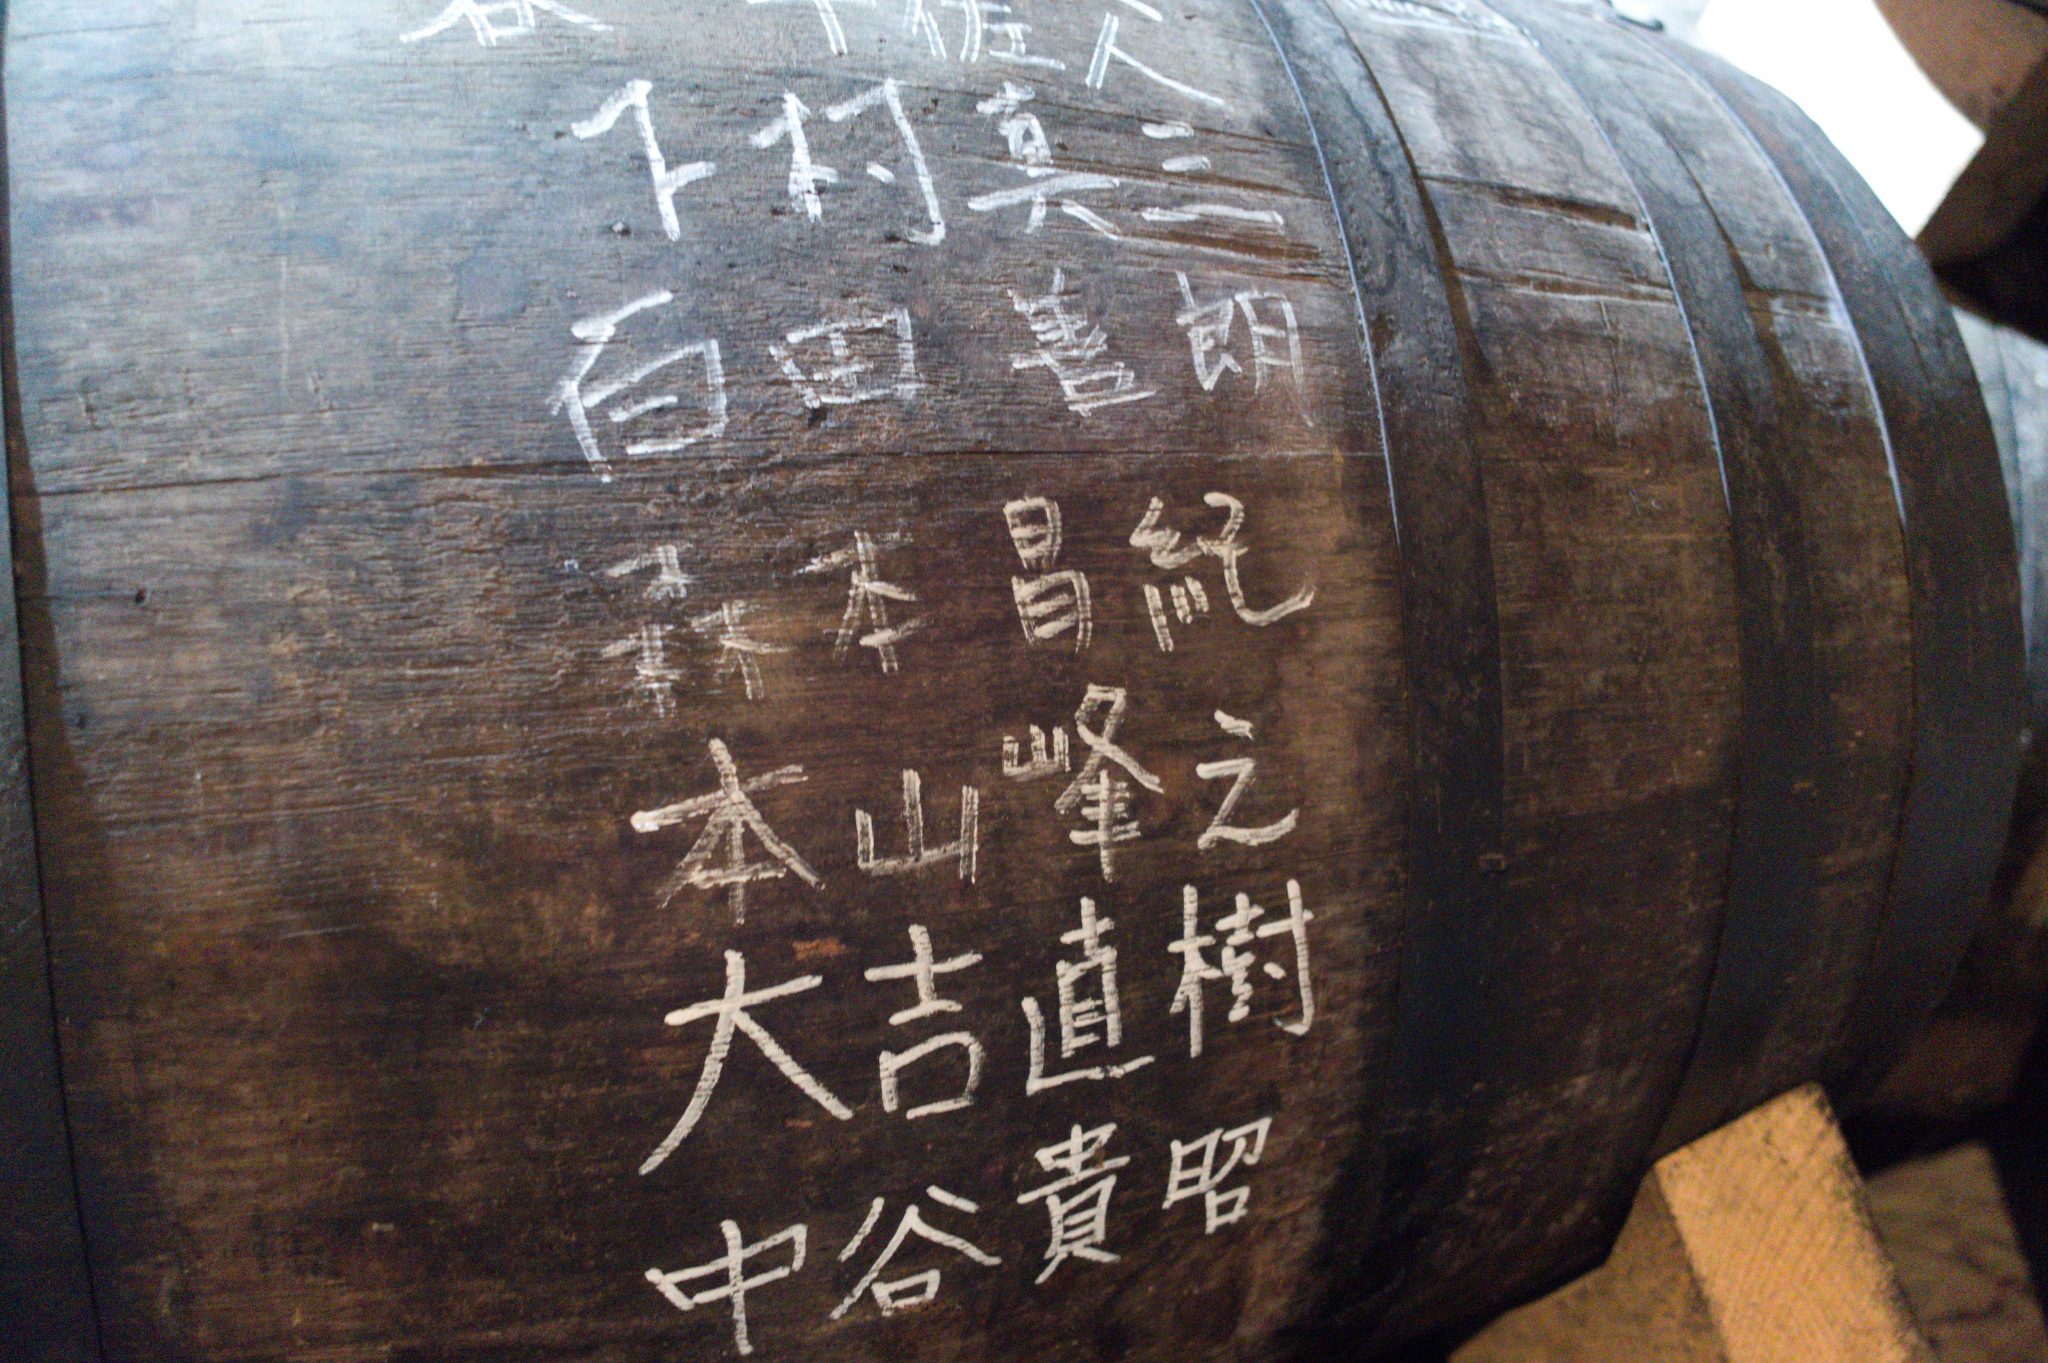 下村真三
白田善朗
森本昌紀
本山峰之
大吉直樹
中谷貴昭